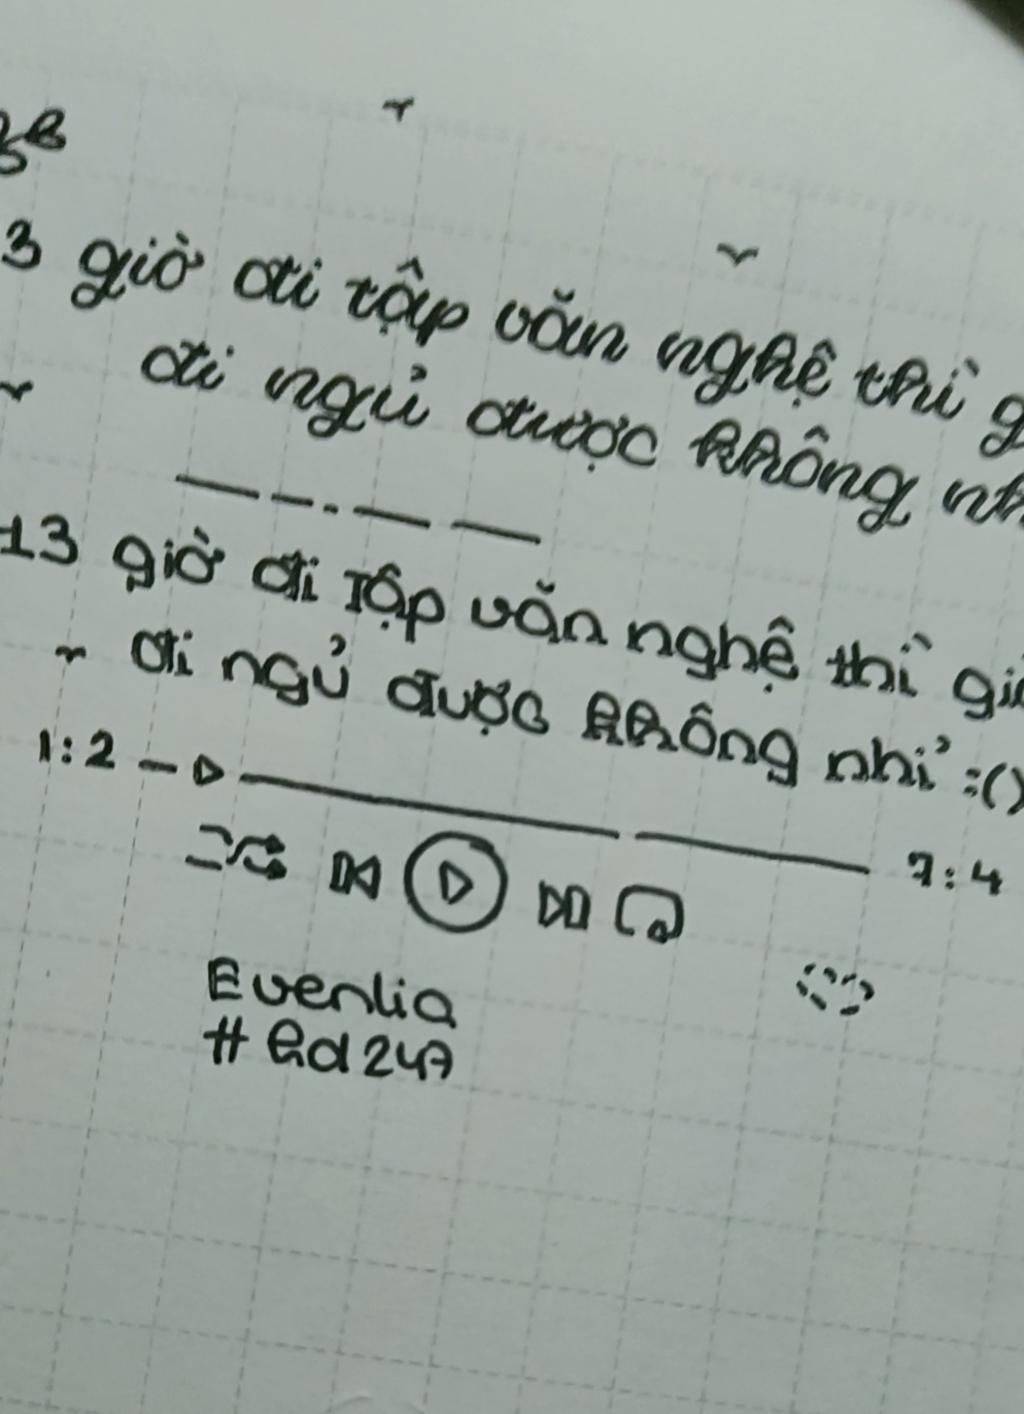 3 giờ đi tập văn nghệ thì
đi ngủ được không
13 giờ đi tập văn nghệ thì
đi ngủ được không nhỉ :()
1:2
7:4
Evenlia